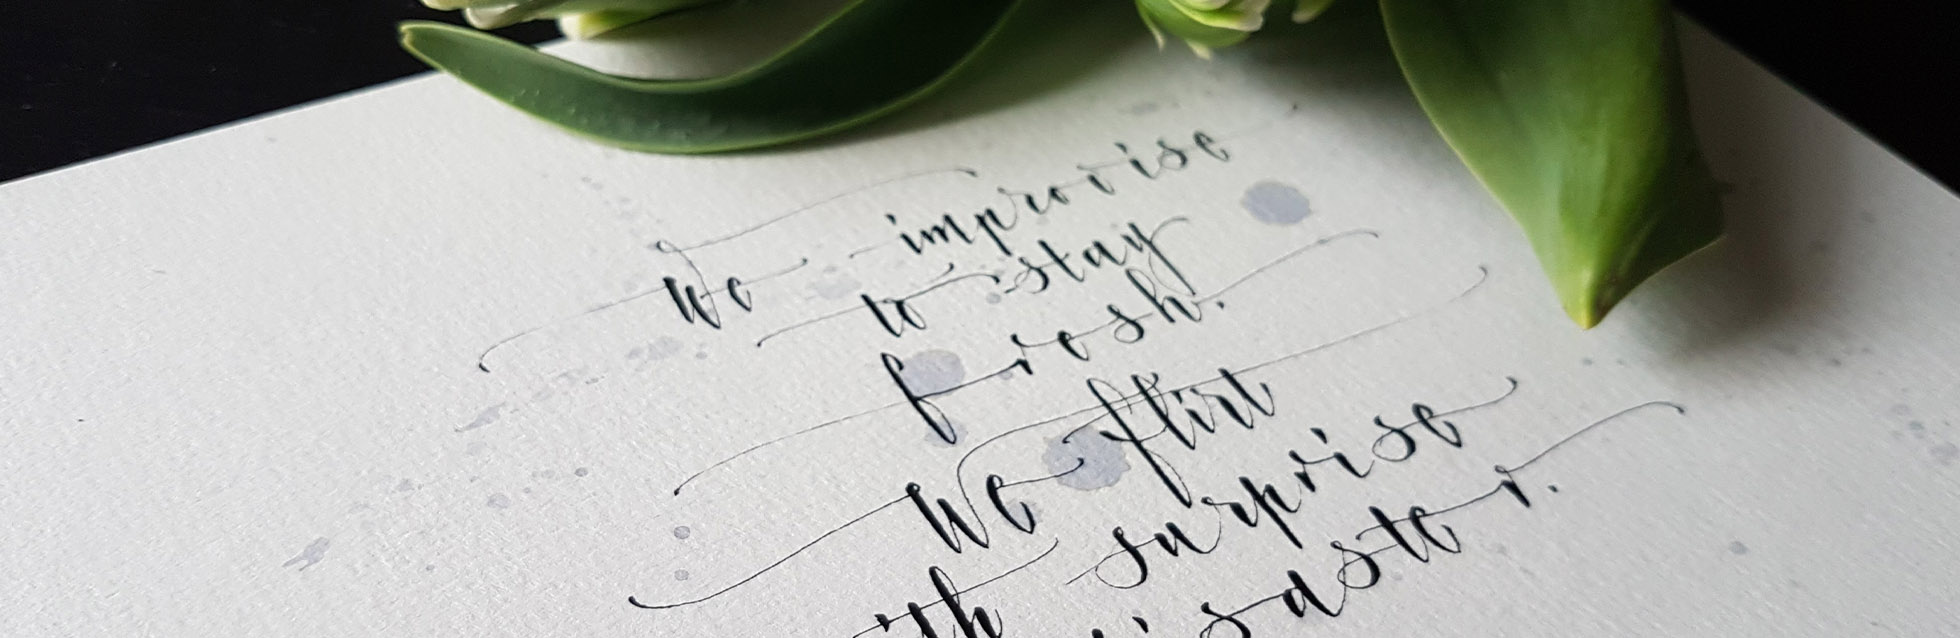 We improvise
to stay
fresh.
We flirt
ith surprise
isaster.